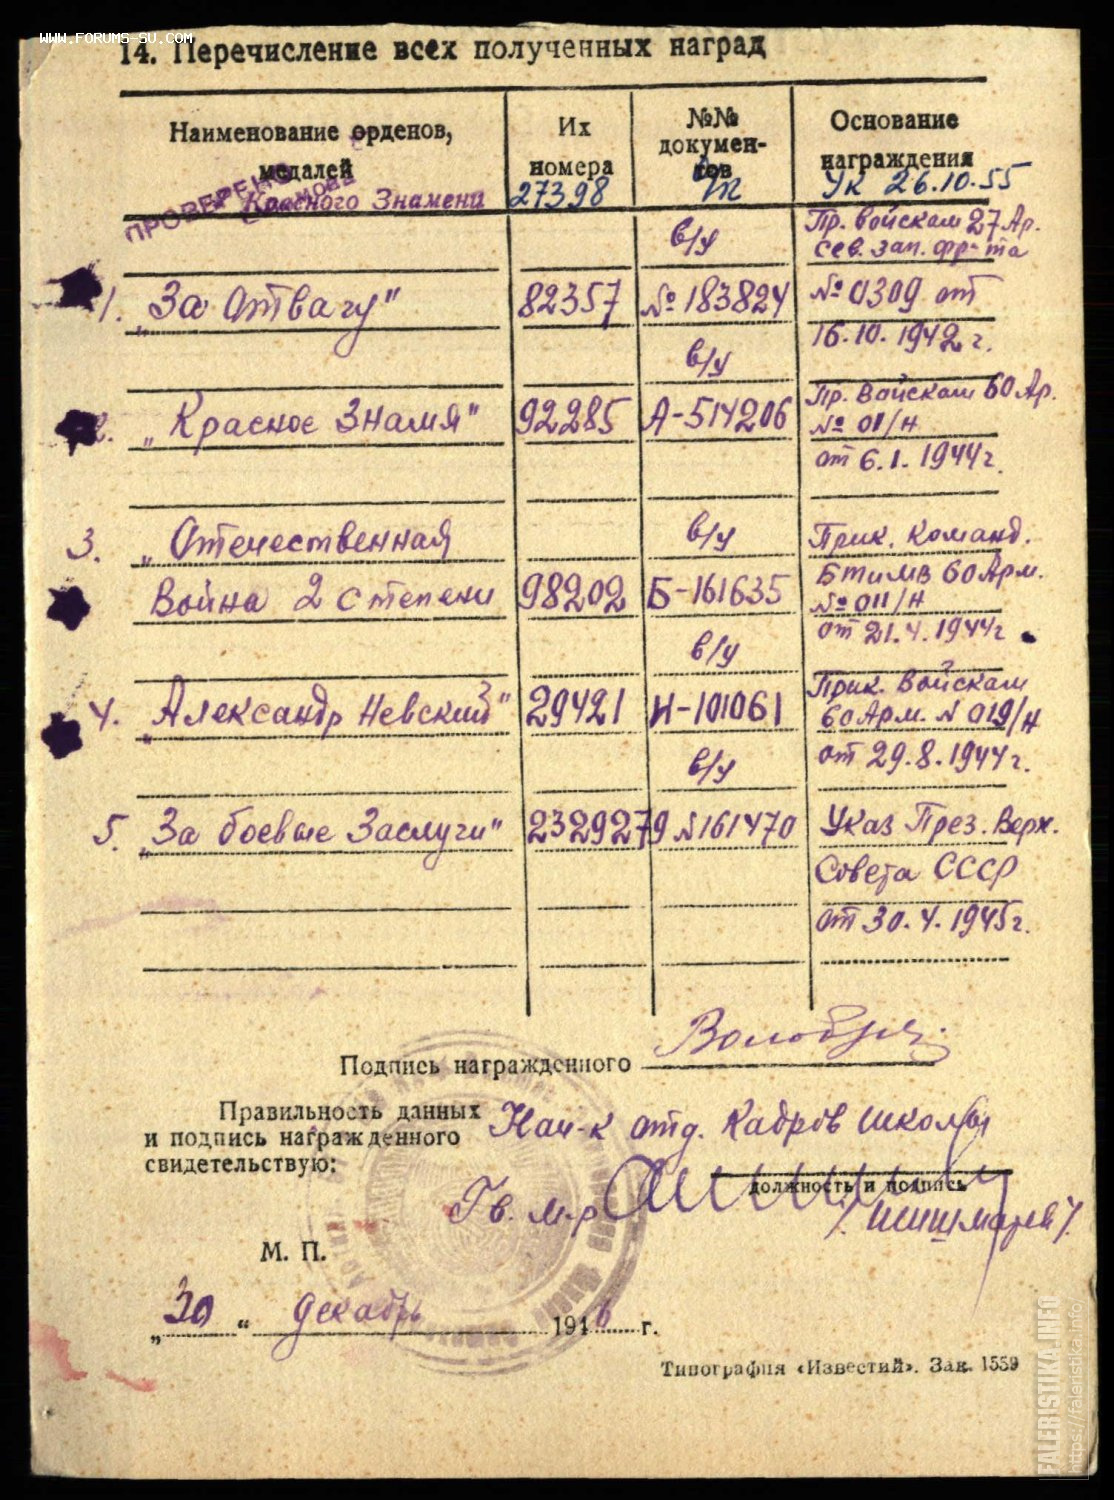 www.forums-su.com
14. Перечисление всех полученных наград
Наименование орденов, медалей
Их номера
№№ документов
Основание награждения
ПРОВЕРЕНО
Красного Знамени 27398 Ук 26.10.55
в/у Пр. Войскам 27 Ар.
Сев. зап. фр-та
1. „За Отвагу" 82357 № 183824 № 0309 от
16.10.1942 г.
в/у
Пр. Войскам 60 Ар.
2. „Красное Знамя" 92285 А-514206 № 01/н
от 6.1.1944 г.
3. „Отечественная в/у Прик. Команд.
Война 2 степени 98202 Б-161635 БТиМВ 60 Арм.
№ 011/н
в/у от 21.4.1944 г.
4. „Александр Невский" 29421 Н-101061 Прик. Войскам
60 Арм. N 019/н
в/у от 29.8.1944 г.
5. „За боевые Заслуги" 2329279 N161470 Указ През. Верх.
Совета СССР
от 30.4.1945 г.
Подпись награжденного
Правильность данных
и подпись награжденного
свидетельствую:
Нач-к отд. Кадров Школы
должность и подпись
Гв. м-р
/Шишмарев/
М. П.
„30" декабрь 1946 г.
Типография «Известий». Зак. 1559
FALERISTIKA.INFO
https://faleristika.info